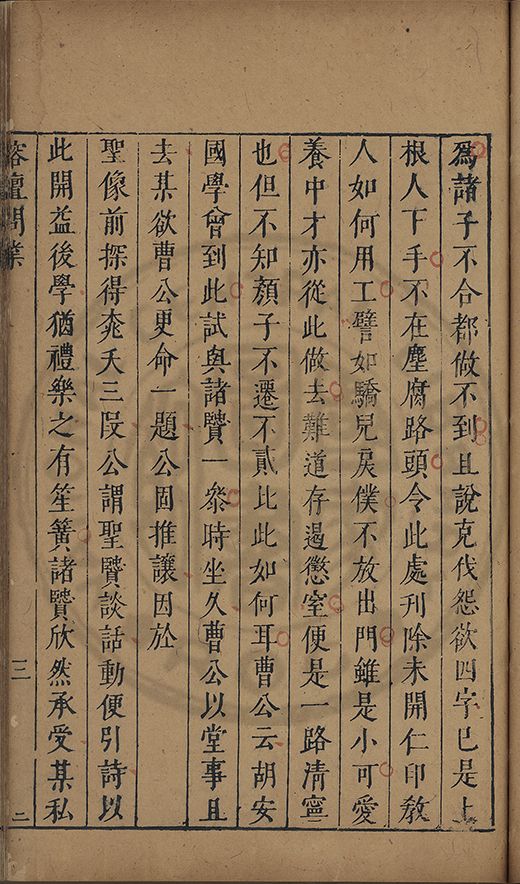 爲諸子不合都做不到且說克伐怨欲四字已是上
根人下手不在塵腐路頭令此處刋除未開仁印敎
人如何用工譬如驕兒戾僕不放出門雖是小可愛
養中才亦從此做去難道存遏懲窒便是一路清寧
也但不知顏子不遷不貳比此如何耳曹公云胡安
國學會到此試與諸贒一叅時坐久曹公以堂事且
去某欲曹公更命一題公固推讓因於
聖像前探得桃夭三段公謂聖贒談話動便引詩以
此開益後學猶禮樂之有笙簧諸贒欣然承受某私
榕壇問業
三
二